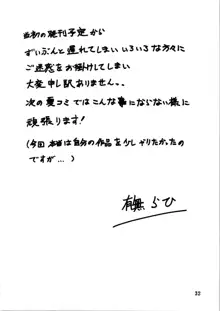 当初の発刊予定から
ずいぶんと遅れてしまいいろいろな方々に
ご迷惑をお掛けしてしまい
大変申し訳ありません。。
次の夏コミではこんな事にならない様に
頑張ります!
(今回本当は自分の作品を少しやりたかったの
ですが…)
らひ
32